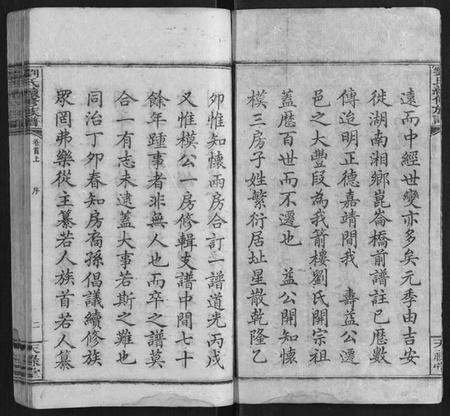 遠而中經世變亦多矣元季由吉安
徙湖南湘鄉崑崙橋前譜註已歷數
傳追明正德嘉靖間我 壽益公遷
邑之大豐段為我箭樓劉氏開宗祖
蓋歷百世而不遷也 益公開知懷
模三房子姓繁衍居址星散乾隆乙
卯惟知懷兩房合訂一譜道光丙戌
又惟模公一房修輯支譜中間七十
餘年踵事者非無人也而卒之譜莫
合一有志未逮蓋大事若斯之難也
同治丁卯春知房裔孫倡議續修族
眾罔弗樂從主纂若人族首若人纂
劉氏續修族譜
卷首上
序
二
天祿堂